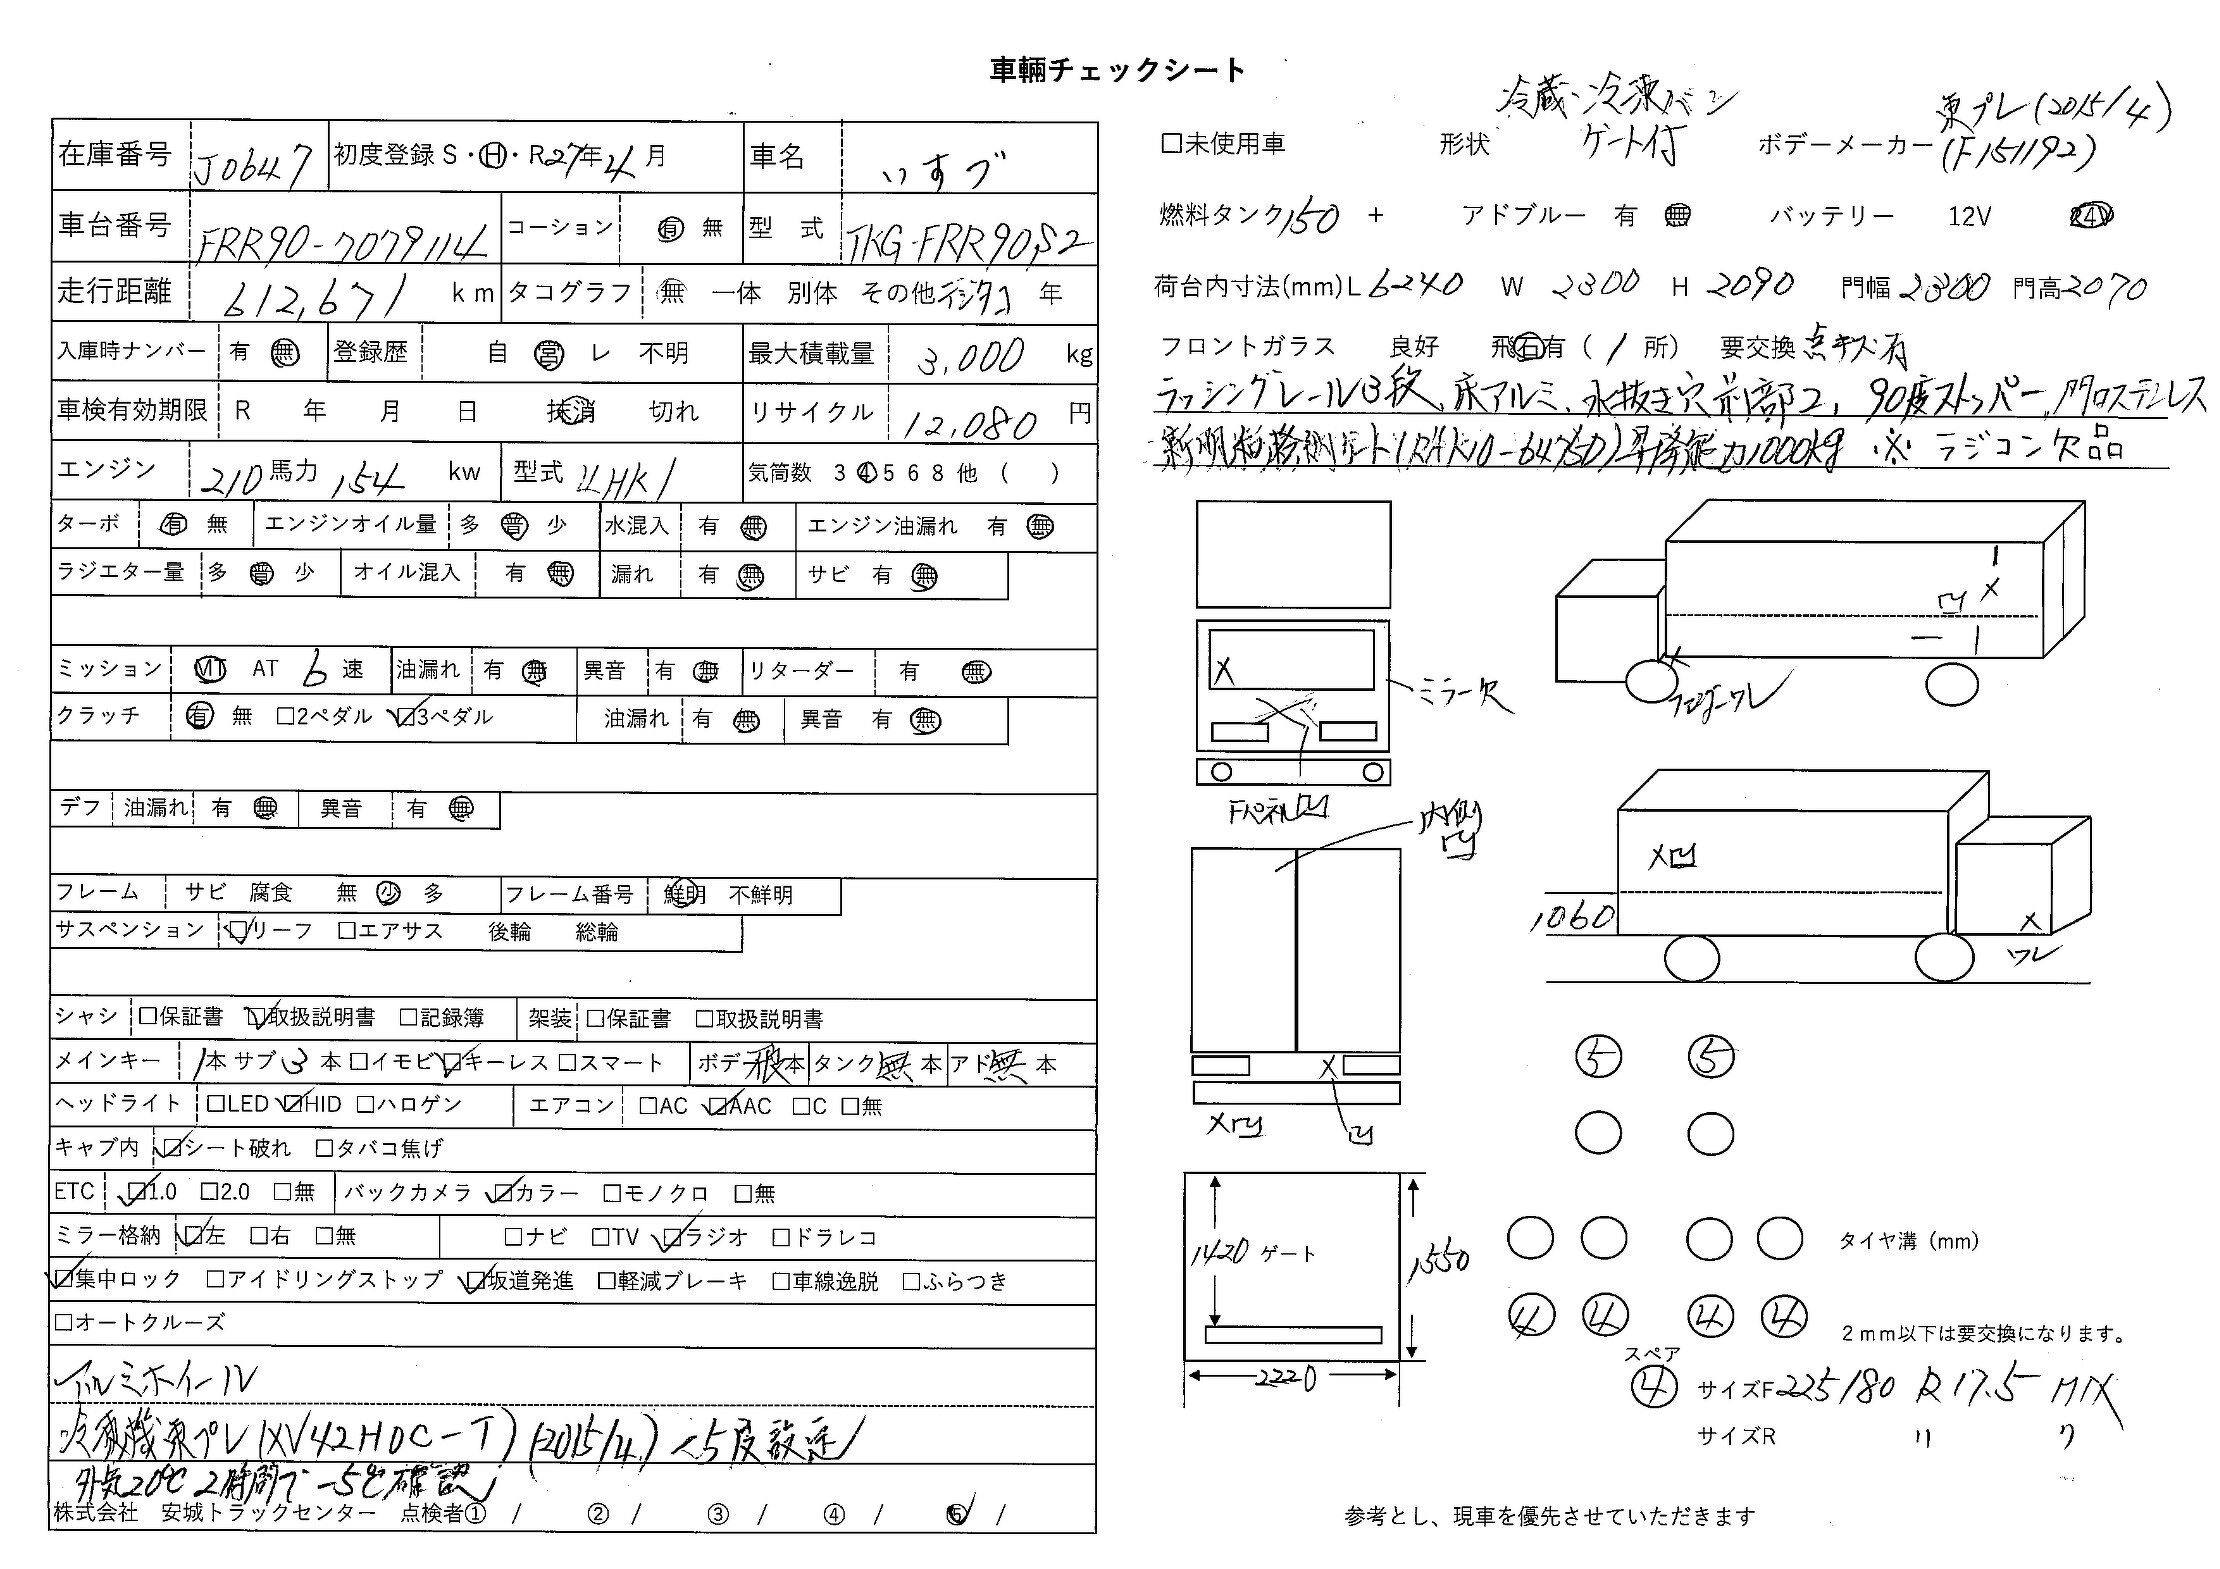 車輛チェックシート
在庫番号 J0647 初度登録 S・H・R27年4月 車名 いすづ
車台番号 FRR90-7079114 コーション 有 無 型 式 TKG-FRR90S2
走行距離 612,671 km タコグラフ 無 一体 別体 その他 デジタコ 年
入庫時ナンバー 有 無 登録歴 自 営 レ 不明 最大積載量 3,000 kg
車検有効期限 R 年 月 日 抹消 切れ リサイクル 12,080 円
エンジン 210馬力 154 kw 型式 4HK1 気筒数 3 4 5 6 8 他 ( )
ターボ 有 無 エンジンオイル量 多 普 少 水混入 有 無 エンジン油漏れ 有 無
ラジエター量 多 普 少 オイル混入 有 無 漏れ 有 無 サビ 有 無
ミッション MT AT 6 速 油漏れ 有 無 異音 有 無 リターダー 有 無
クラッチ 有 無 □2ペダル ☑3ペダル 油漏れ 有 無 異音 有 無
デフ 油漏れ 有 無 異音 有 無
フレーム サビ 腐食 無 少 多 フレーム番号 鮮明 不鮮明
サスペンション ☑リーフ □エアサス 後輪 総輪
シャシ □保証書 ☑取扱説明書 □記録簿 架装 □保証書 □取扱説明書
メインキー 1本 サブ 3 本 □イモビ ☑キーレス □スマート ボデ 本 タンク 無 本 アド 無 本
ヘッドライト □LED ☑HID □ハロゲン エアコン □AC ☑AAC □C □無
キャブ内 ☑シート破れ □タバコ焦げ
ETC ☑1.0 □2.0 □無 バックカメラ ☑カラー □モノクロ □無
ミラー格納 ☑左 □右 □無 □ナビ □TV ☑ラジオ □ドラレコ
☑集中ロック □アイドリングストップ ☑坂道発進 □軽減ブレーキ □車線逸脱 □ふらつき
□オートクルーズ
アルミホイール
冷凍機東プレ(XV42HDC-T)(2015/4) -5度設定
外気20℃ 2時間で-5℃確認
株式会社 安城トラックセンター 点検者① / ② / ③ / ④ / ⑤ /
冷蔵・冷凍バン 東プレ(2015/4)
□未使用車 形状 ゲート付 ボデーメーカー (F151192)
燃料タンク 150 + アドブルー 有 無 バッテリー 12V 24V
荷台内寸法(mm) L 6240 W 2300 H 2090 門幅 2300 門高 2070
フロントガラス 良好 飛石有 ( 1 所) 要交換 点キズ有
ラッシングレール3段、床アルミ、水抜き穴前部2、90度ストッパー、門口ステンレス
新明和格納ゲート(RHK10-64750)昇降能力1000kg ※ ラジコン欠品
ミラー欠
フェンダーワレ
Fパネル凹
内側
凹
1060
ワレ
X凹
X凹
凹
凹
5 5
1420 ゲート 1550
2220
タイヤ溝 (mm)
4 4 4 4
2mm以下は要交換になります。
スペア
4 サイズF 225/80 R 17.5 MIX
サイズR 〃 〃
参考とし、現車を優先させていただきます